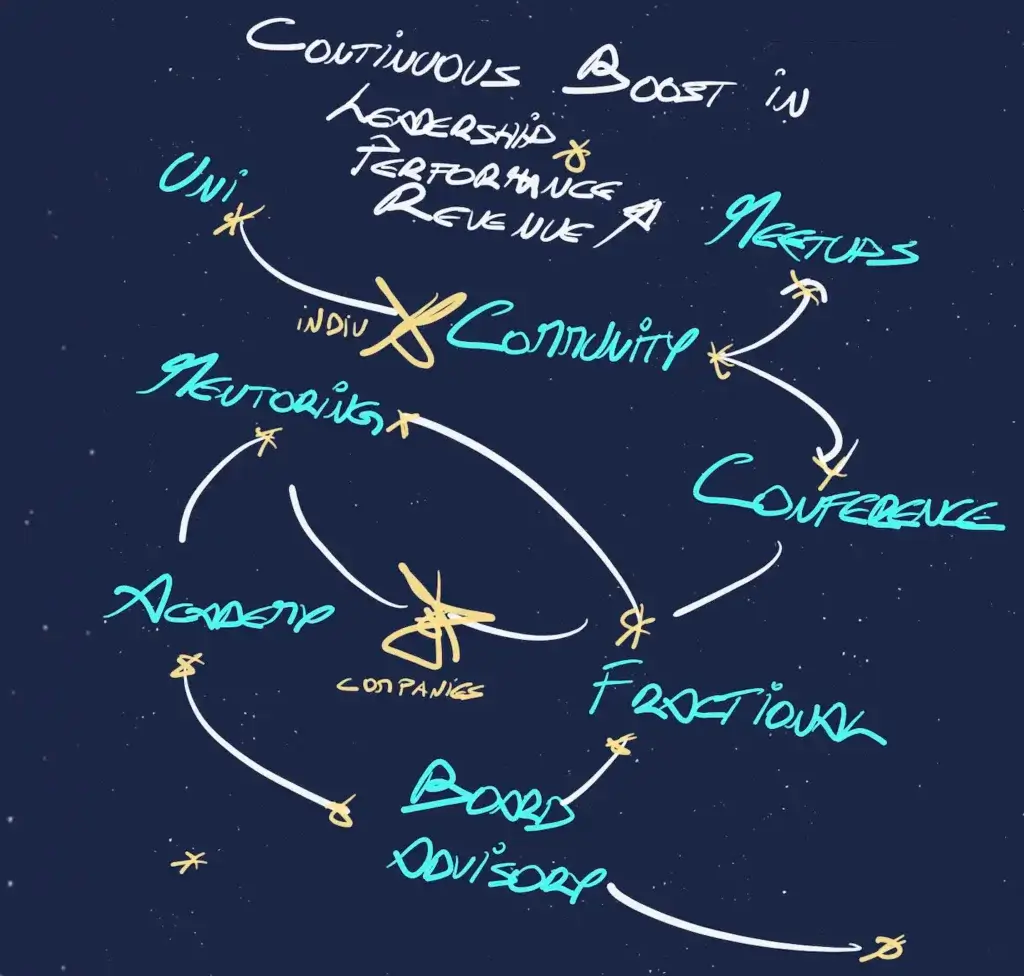 CONTINUOUS BOOST IN
LEADERSHIP
PERFORMANCE
REVENUE
UNI
MEETUPS
INDIV
COMMUNITY
MENTORING
CONFERENCE
ACADEMY
COMPANIES
FRACTIONAL
BOARD
ADVISORY